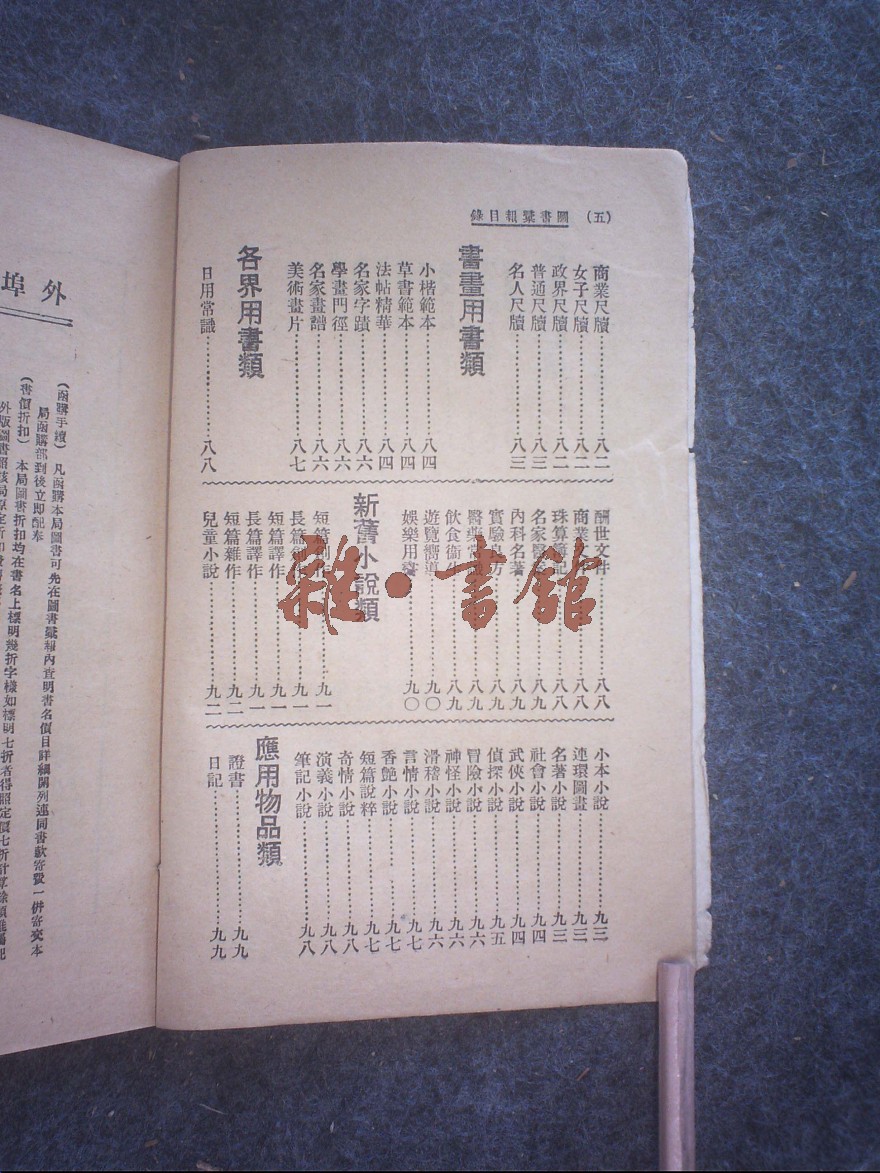 圖書彙報目錄 (五)
商業尺牘 八二
女子尺牘 八二
政界尺牘 八二
普通尺牘 八三
名人尺牘 八三
書畫用書類
小楷範本 八四
草書範本 八四
法帖精華 八四
名家字蹟 八六
學畫門徑 八六
名家畫譜 八六
美術畫片 八七
各界用書類
日用常識 八八
酬世文件 八八
商業 八八
珠算簿記 八八
名家醫 八九
內科名著 八九
實驗良方 八九
醫藥常識 八九
飲食衛生 八九
遊覽嚮導 九〇
娛樂用書 九〇
新舊小說類
短篇創作 九一
長篇創作 九一
短篇譯作 九一
長篇譯作 九一
短篇雜作 九二
兒童小說 九二
小本小說 九三
連環圖畫 九三
名著小說 九三
社會小說 九四
武俠小說 九四
偵探小說 九五
冒險小說 九六
神怪小說 九六
滑稽小說 九六
言情小說 九七
香艷小說 九七
短篇說粹 九七
奇情小說 九八
演義小說 九八
筆記小說 九八
應用物品類
證書 九九
日記 九九
雜·書館
外埠
(函購手續) 凡函購本局圖書可先在圖書彙報內查明書名價目詳細開列連同書款寄費一併寄交本
局函購部到後立即配奉
(書價折扣) 本局圖書折扣均在書名上標明幾折字樣如標明七折者得照定價七折計算
外版圖書照該局原定折扣